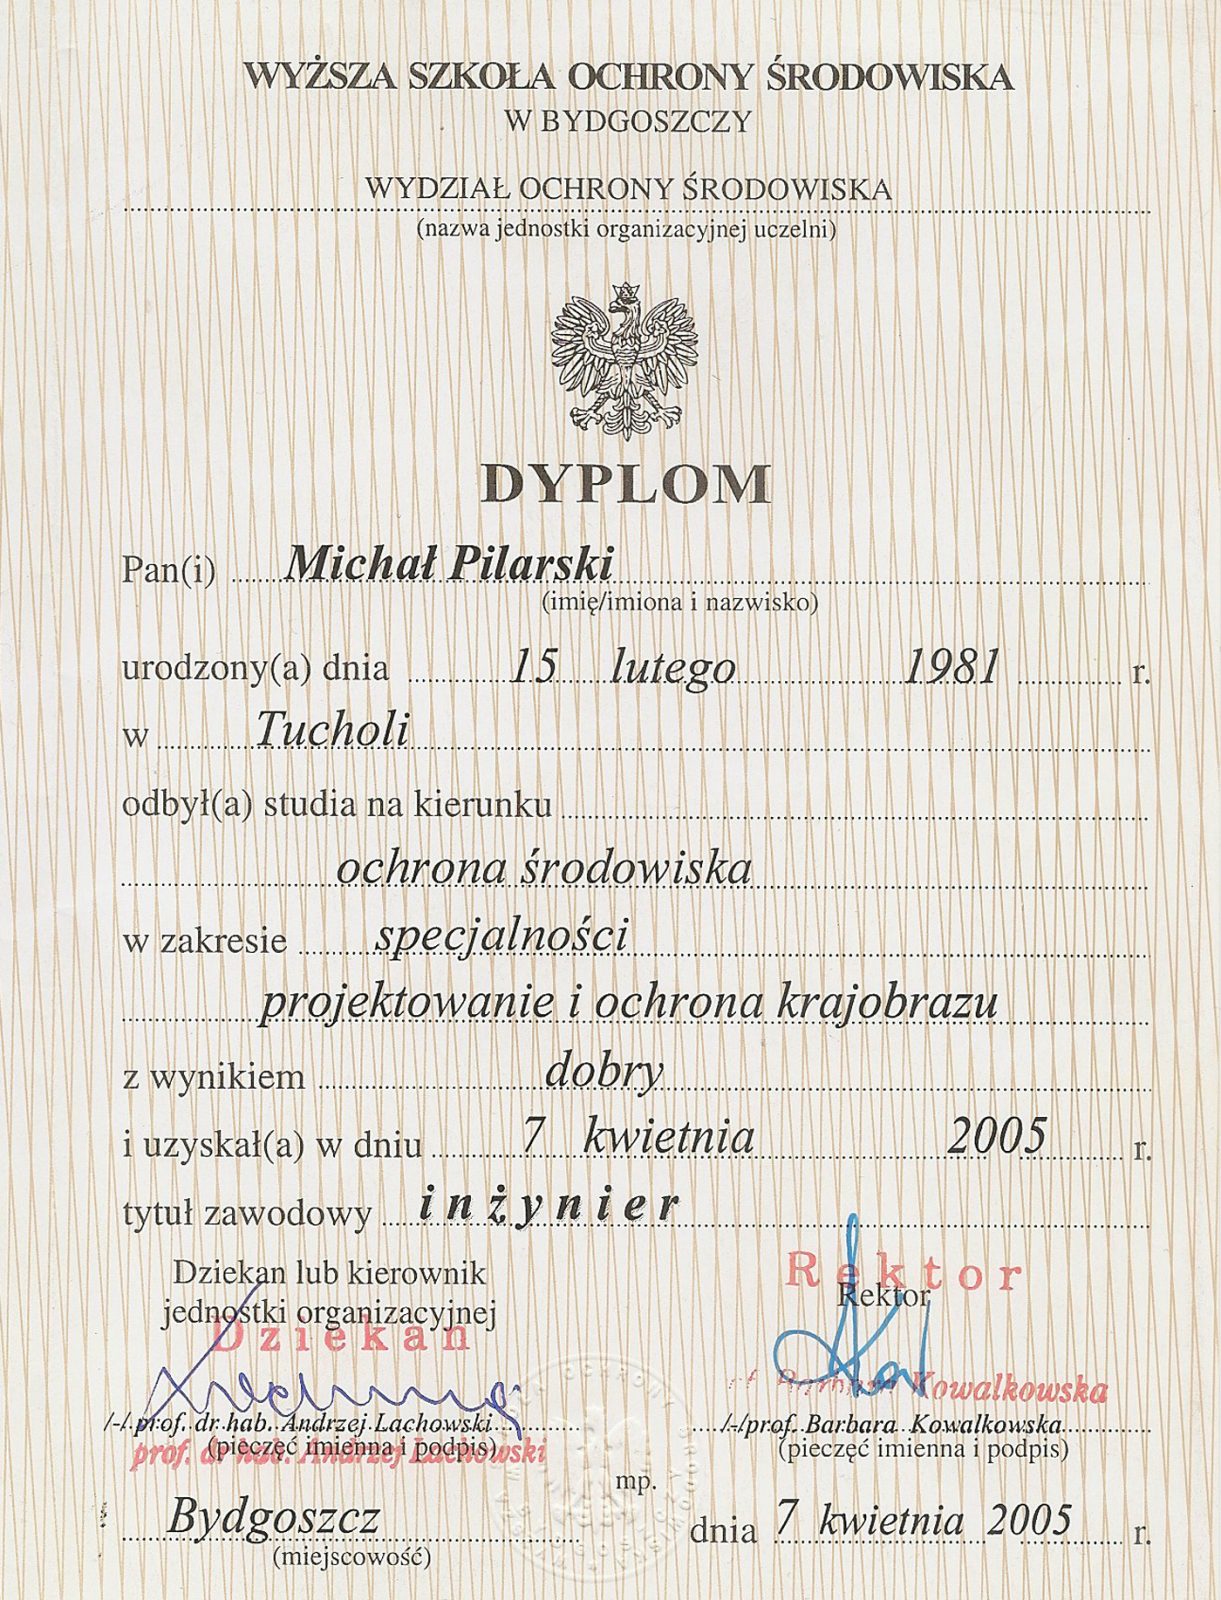 WYŻSZA SZKOŁA OCHRONY ŚRODOWISKA
W BYDGOSZCZY
WYDZIAŁ OCHRONY ŚRODOWISKA
(nazwa jednostki organizacyjnej uczelni)
DYPLOM
Pan(i) Michał Pilarski
(imię/imiona i nazwisko)
urodzony(a) dnia 15 lutego 1981 r.
w Tucholi
odbył(a) studia na kierunku
ochrona środowiska
w zakresie specjalności
projektowanie i ochrona krajobrazu
z wynikiem dobry
i uzyskał(a) w dniu 7 kwietnia 2005 r.
tytuł zawodowy inżynier
Dziekan lub kierownik
jednostki organizacyjnej
Dziekan
Rektor
Rektor
Kowalkowska
/-/ prof. dr hab. Andrzej Lachowski
/-/prof. Barbara Kowalkowska
(pieczęć imienna i podpis)
(pieczęć imienna i podpis)
prof. dr hab. Andrzej Lachowski
mp.
Bydgoszcz
dnia 7 kwietnia 2005 r.
(miejscowość)